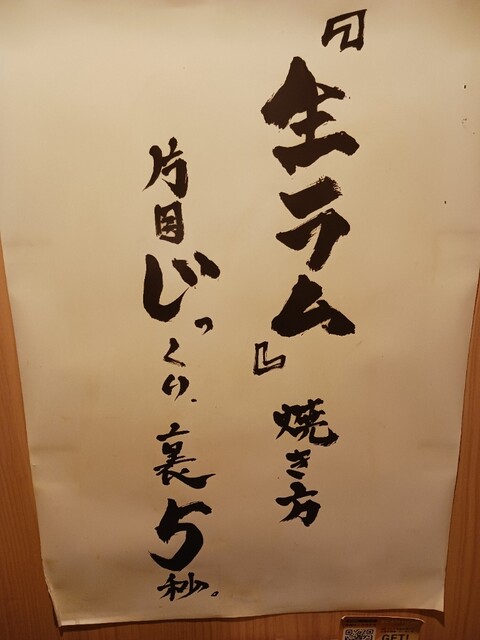 『生ラム』焼き方
片面じっくり、裏5秒。
GET!